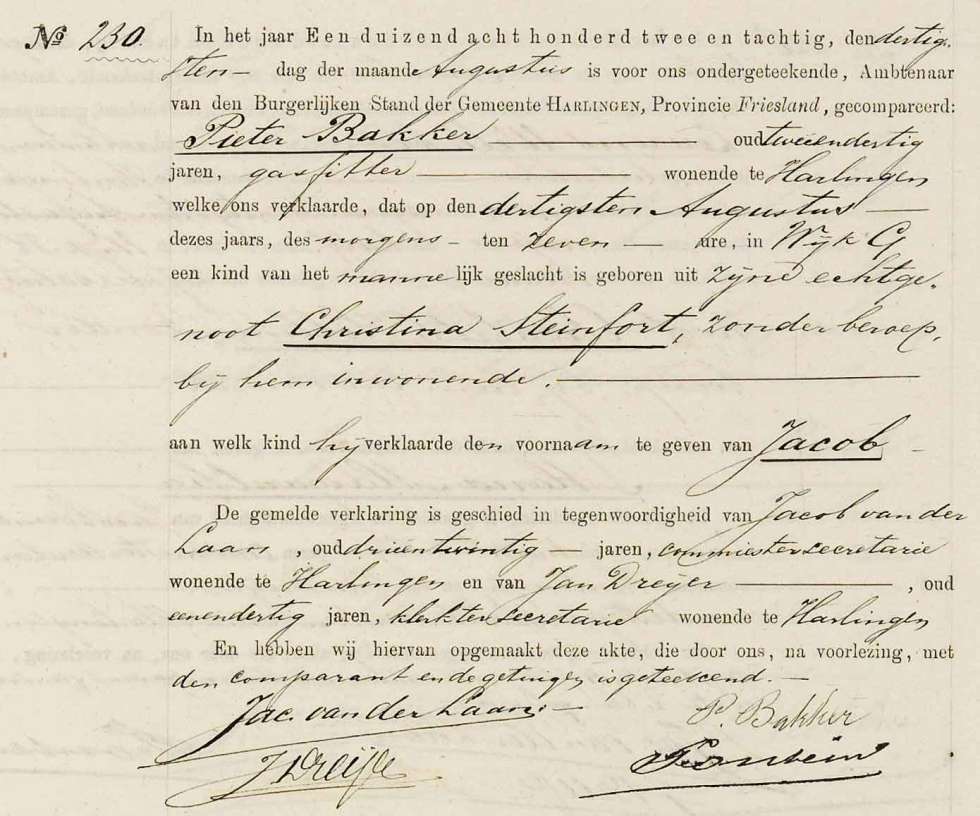 No 230. In het jaar Een duizend acht honderd twee en tachtig, den dertig-
sten dag der maand Augustus is voor ons ondergeteekende, Ambtenaar
van den Burgerlijken Stand der Gemeente HARLINGEN, Provincie Friesland, gecompareerd:
Pieter Bakker oud tweeendertig
jaren, gasfitter wonende te Harlingen
welke ons verklaarde, dat op den dertigsten Augustus
dezes jaars, des morgens ten zeven ure, in Wijk G
een kind van het mannelijk geslacht is geboren uit zijne echtge-
noot Christina Steinfort, zonder beroep,
bij hem inwonende.
aan welk kind hij verklaarde den voornaam te geven van Jacob
De gemelde verklaring is geschied in tegenwoordigheid van Jacob van der
Laan, oud drieentwintig jaren, commies ter secretarie
wonende te Harlingen en van Jan Dreijer, oud
eenendertig jaren, klerk ter secretarie wonende te Harlingen
En hebben wij hiervan opgemaakt deze akte, die door ons, na voorlezing, met
den comparant en de getuigen is geteekend.
Jac. van der Laan. P. Bakker